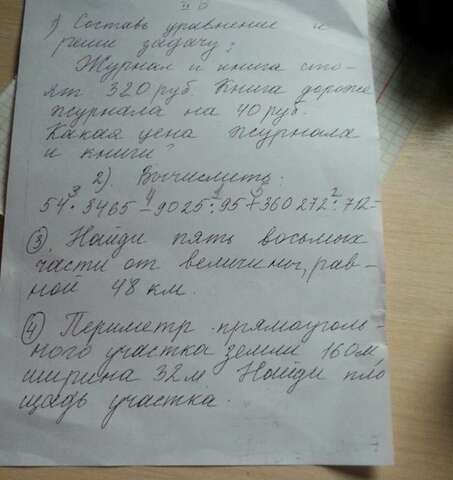 II в
1) Составь уравнение и
реши задачу:
Журнал и книга сто-
ят 320 руб. Книга дороже
журнала на 40 руб.
Какая цена журнала
и книги?
2). Вычислить:
3 4 1 5 2
54 · 3465 - 9025 : 95 + 360 272 : 712 =
③ Найди пять восьмых
части от величины, рав-
ной 48 км.
④ Периметр прямоуголь-
ного участка земли 160м,
ширина 32м. Найди пло
щадь участка.